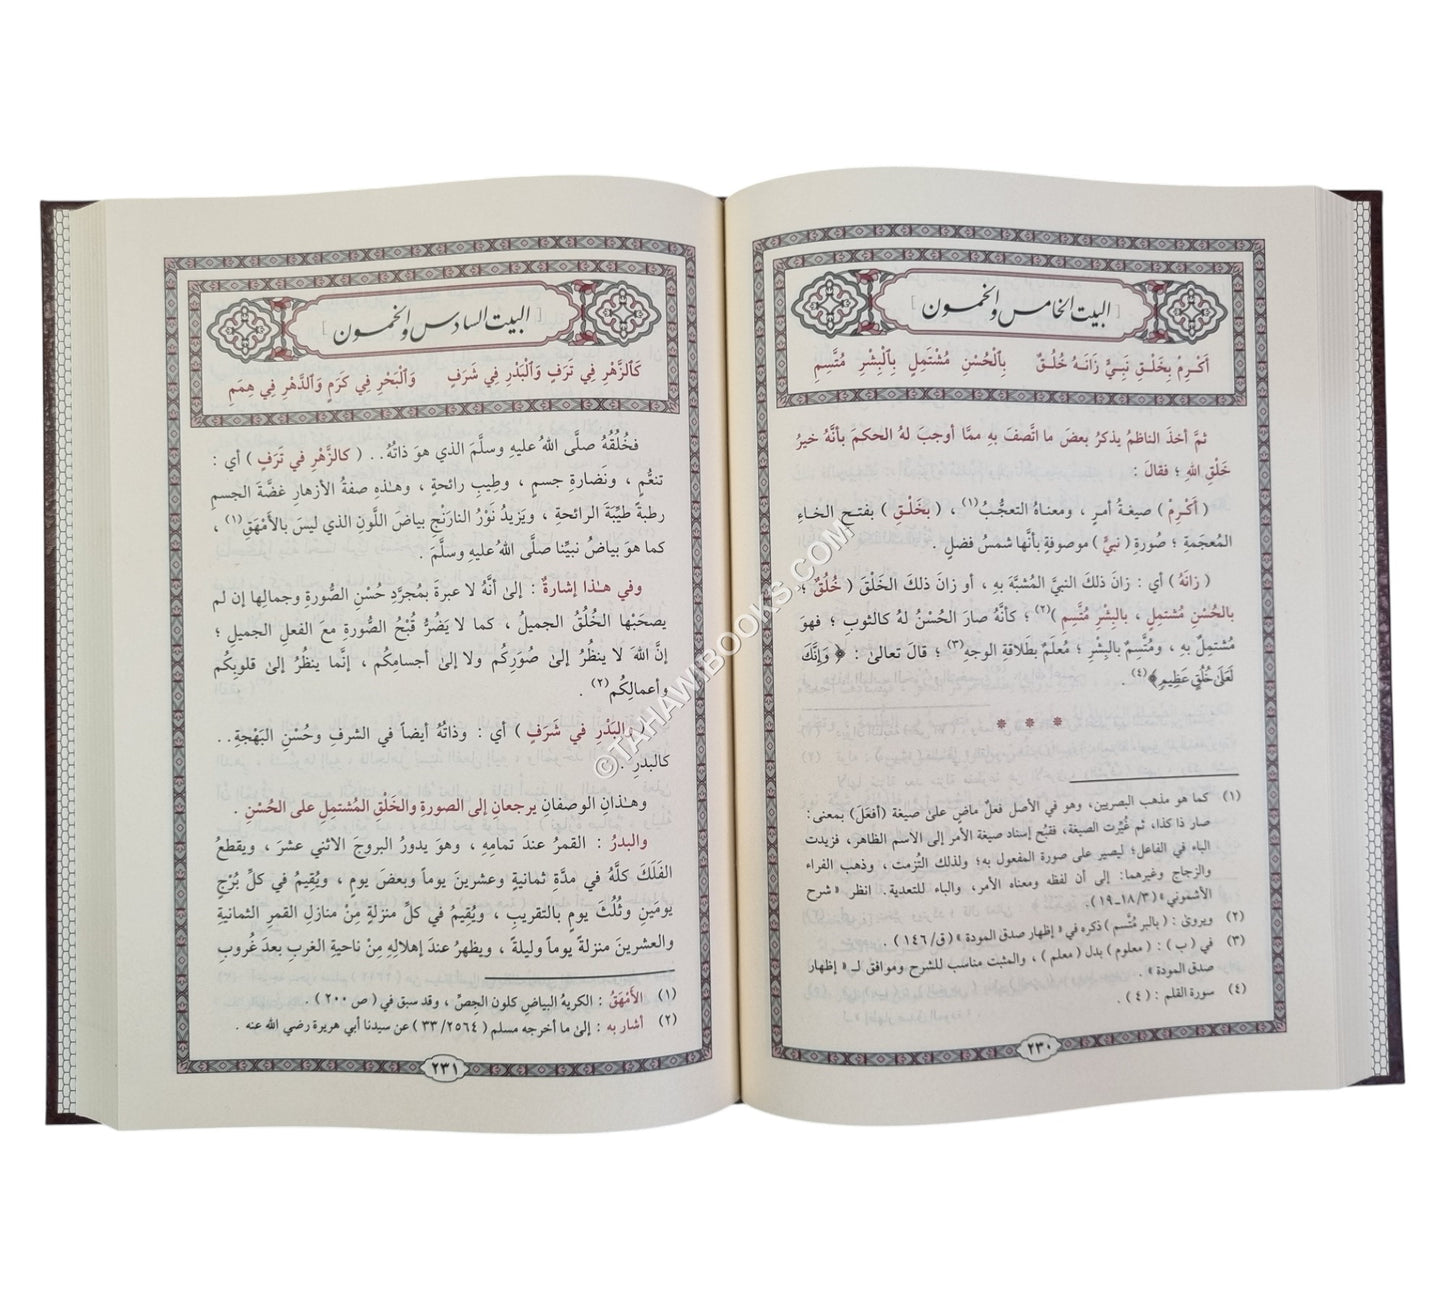 [ البيت الخامس والخمسون ]
أَكْرِمْ بِخَلْقِ نَبِيٍّ زَانَهُ خُلُقٌ بِٱلْحُسْنِ مُشْتَمِلٍ بِٱلْبِشْرِ مُتَّسِمِ
ثمَّ أخذَ الناظمُ يذكرُ بعضَ ما اتَّصفَ بهِ ممَّا أوجبَ لهُ الحكمَ بأنَّهُ خيرُ
خَلْقِ اللهِ ؛ فقالَ :
( أَكْرِمْ ) صيغةُ أمرٍ ، ومعناهُ التعجُّبُ(١) ، ( بخَلْقِ ) بفتحِ الخاءِ
المُعجَمةِ ؛ صُورةِ ( نبيٍّ ) موصوفةٍ بأنَّها شمسُ فضلٍ .
( زانَهُ ) أي : زانَ ذلكَ النبيَّ المُشبَّهَ بهِ ، أو زانَ ذلكَ الخَلْقَ ( خُلُقٌ ؛
بالحُسْنِ مُشتمِلٍ ، بالبِشْرِ مُتَّسِمِ )(٢) ؛ كأنَّهُ صارَ الحُسْنُ لهُ كالثوبِ ؛ فهوَ
مُشتمِلٌ بهِ ، ومُتَّسِمٌ بالبِشْرِ ؛ مُعلَمٌ بطَلاقةِ الوجهِ(٣) ؛ قالَ تعالىٰ : ﴿ وَإِنَّكَ
لَعَلَىٰ خُلُقٍ عَظِيمٍ ﴾(٤) .
* * *
(١) كما هو مذهب البصريين، وهو في الأصل فعلٌ ماضٍ علىٰ صيغة (أَفعَلَ) بمعنى:
صار ذا كذا، ثم غُيِّرت الصيغة، فقبُح إسناد صيغة الأمر إلى الاسم الظاهر، فزيدت
الباء في الفاعل؛ ليصير على صورة المفعول به؛ ولذلك التُزمت، وذهب الفراء
والزجاج وغيرهما: إلى أن لفظه ومعناه الأمر، والباء للتعدية. انظر « شرح
الأشموني » (١٨/٣-١٩).
(٢) ويروىٰ : ( بالبر مُتَّسم ) ذكره في « إظهار صدق المودة » (ق/١٤٦) .
(٣) في ( ب ) : ( معلوم ) بدل ( معلم ) ، والمثبت مناسب للشرح وموافق لـ « إظهار
صدق المودة » .
(٤) سورة القلم : ( ٤ ) .
٢٣٠
[ البيت السادس والخمسون ]
كَٱلزَّهْرِ فِي تَرَفٍ وَٱلْبَدْرِ فِي شَرَفٍ وَٱلْبَحْرِ فِي كَرَمٍ وَٱلدَّهْرِ فِي هِمَمِ
فخُلُقُهُ صلَّى اللهُ عليهِ وسلَّمَ الذي هوَ ذاتُهُ . . ( كالزَّهْرِ في تَرَفٍ ) أي :
تنعُّمٍ ، ونَضارةِ جسمٍ ، وطِيبِ رائحةٍ ، وهـٰذهِ صفةُ الأزهارِ غضَّةَ الجسمِ
رطبةً طيِّبَةَ الرائحةِ ، ويَزيدُ نَوْرُ النارَنْجِ بياضَ اللَّونِ الذي ليسَ بالأَمْهَقِ(١) ،
كما هوَ بياضُ نبيِّنا صلَّى اللهُ عليهِ وسلَّمَ .
وفي هـٰذا إشارةٌ : إلىٰ أنَّهُ لا عبرةَ بمُجرَّدِ حُسْنِ الصُّورةِ وجمالِها إن لم
يصحَبْها الخُلُقُ الجميلُ ، كما لا يَضُرُّ قُبْحُ الصُّورةِ معَ الفعلِ الجميلِ ؛
إنَّ اللهَ لا ينظُرُ إلىٰ صُوَرِكُم ولا إلىٰ أجسامِكُم ، إنَّما ينظُرُ إلىٰ قلوبِكُم
وأعمالِكُم(٢) .
( والبَدْرِ في شَرَفٍ ) أي : وذاتُهُ أيضاً في الشرفِ وحُسْنِ البَهْجةِ . .
كالبدرِ .
وهـٰذانِ الوصفانِ يرجعانِ إلى الصورةِ والخَلْقِ المُشتمِلِ على الحُسْنِ .
والبدرُ : القمرُ عندَ تمامِهِ ، وهوَ يدورُ البروجَ الاثني عشرَ ، ويقطعُ
الفَلَكَ كلَّهُ في مدَّةِ ثمانيةٍ وعشرينَ يوماً وبعضِ يومٍ ، ويُقِيمُ في كلِّ بُرْجٍ
يومَينِ وثُلُثَ يومٍ بالتقريبِ ، ويُقِيمُ في كلِّ منزلةٍ مِنْ منازلِ القمرِ الثمانيةِ
والعشرينَ منزلةً يوماً وليلةً ، ويظهرُ عندَ إهلالِهِ مِنْ ناحيةِ الغربِ بعدَ غُروبِ
(١) الأَمْهَقُ : الكريهُ البياضِ كلون الجِصِّ ، وقد سبق في ( ص ٢٠٠ ) .
(٢) أشار به : إلىٰ ما أخرجه مسلم ( ٣٣/٢٥٦٤ ) عن سيدنا أبي هريرة رضي الله عنه .
٢٣١
©TAHAWIBOOKS.COM